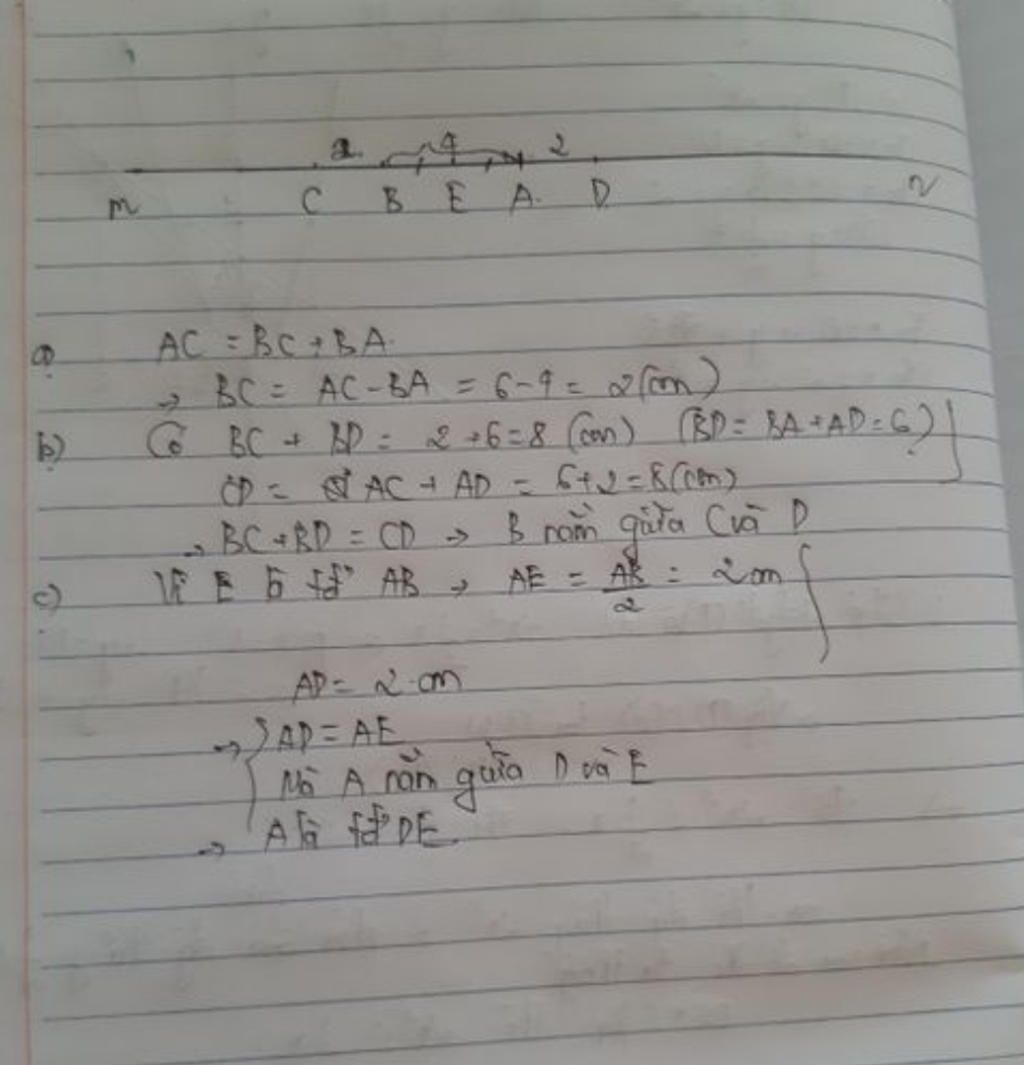 2 4 2
m C B E A D n
a) AC = BC + BA
→ BC = AC - BA = 6 - 4 = 2 (cm)
b) Có BC + BD = 2 + 6 = 8 (cm) (BD = BA + AD = 6)
CD = AC + AD = 6 + 2 = 8 (cm)
→ BC + BD = CD → B nằm giữa C và D
c) Vì E là tđ AB → AE = AB/2 = 2 cm
AD = 2 cm
→ AD = AE
Mà A nằm giữa D và E
→ A là tđ DE